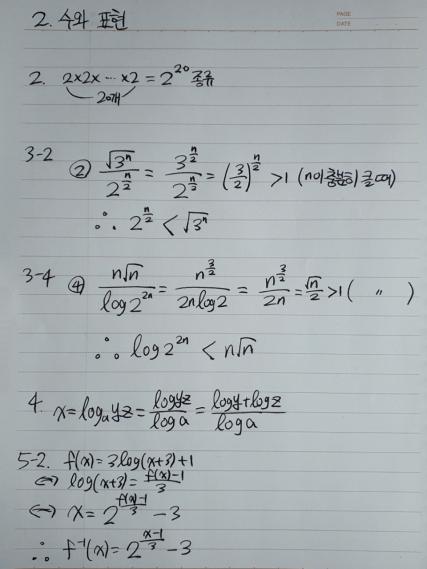 PAGE
DATE
2. 수와 표현
2. 2×2×…×2 = 2^20 종류
20개
3-2 ② √(3^n) / 2^(n/2) = 3^(n/2) / 2^(n/2) = (3/2)^(n/2) >1 (n이 충분히 클 때)
∴ 2^(n/2) < √(3^n)
3-4 ④ n√n / log2^(2n) = n^(3/2) / 2nlog2 = n^(3/2) / 2n = √n/2 >1 ( 〃 )
∴ log2^(2n) < n√n
4. x = log_a yz = logyz / loga = (logy+logz) / loga
5-2. f(x) = 3log(x+3)+1
⇔ log(x+3) = (f(x)-1)/3
⇔ x = 2^((f(x)-1)/3) - 3
∴ f^-1(x) = 2^((x-1)/3) - 3